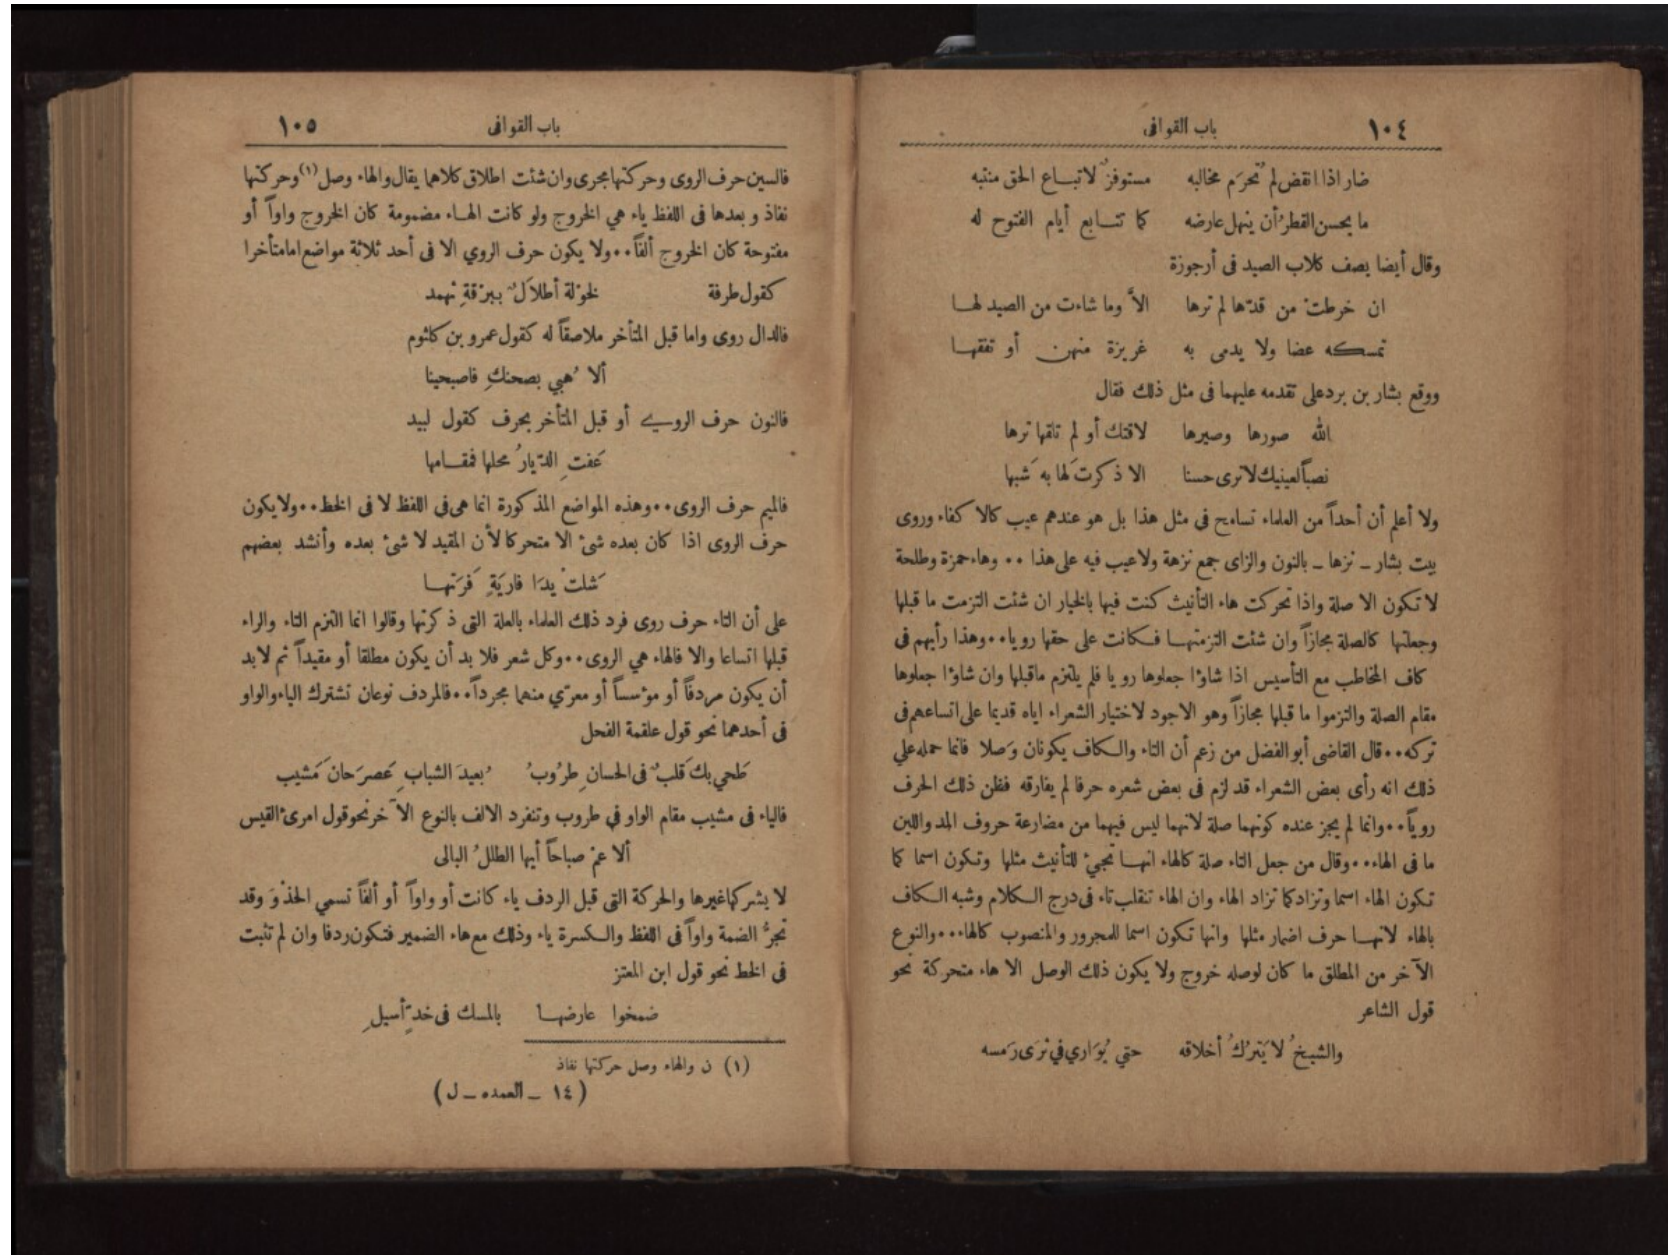 ١٠٤ باب القوافى
ضار اذا انقض لم تُحرَم مخالبه مستوفزٌ لاتباع الحق منتبه
ما يحسن القطرُ أن ينهل عارضه كما تتابع أيام الفتوح له
وقال أيضا يصف كلاب الصيد فى أرجوزة
ان خرطتْ من قدّها لم ترها الاَّ وما شاءت من الصيد لها
تمسكه عضا ولا يدمى به غريزة منهن أو تفقها
ووقع بشار بن برد على تقدمه عليهما فى مثل ذلك فقال
الله صورها وصيرها لاقتك أو لم تلقها ترها
نصباً لعينيك لا ترى حسنا الا ذكرتَ لها به شَبها
ولا أعلم أن أحداً من العلماء تسامح فى مثل هذا بل هو عندهم عيب كالاكفاء وروى
بيت بشار ـ نزها ـ بالنون والزاى جمع نزهة ولا عيب فيه على هذا ٠٠ وهاء حمزة وطلحة
لا تكون الا صلة واذا تحركت هاء التأنيث كنت فيها بالخيار ان شئت التزمت ما قبلها
وجعلتها كالصلة مجازاً وان شئت التزمتها فكانت على حقها رويا٠٠وهذا رأيهم فى
كاف المخاطب مع التأسيس اذا شاؤا جعلوها رويا فلم يلتزم ماقبلها وان شاؤا جعلوها
مقام الصلة والتزموا ما قبلها مجازاً وهو الاجود لاختيار الشعراء اياه قديما على اتساعهم فى
تركه٠٠قال القاضى أبو الفضل من زعم أن التاء والكاف يكونان وَصلا فانما حمله علي
ذلك انه رأى بعض الشعراء قد لزم فى بعض شعره حرفا لم يفارقه فظن ذلك الحرف
روياً٠٠وانما لم يجز عنده كونهما صلة لانهما ليس فيهما من مضارعة حروف المد واللين
ما فى الهاء٠٠وقال من جعل التاء صلة كالهاء انها تجيئ للتأنيث مثلها وتكون اسما كما
تكون الهاء اسما وتزاد كما تزاد الهاء وان الهاء تنقلب تاء فى درج الكلام وشبه الكاف
بالهاء لانها حرف اضمار مثلها وانها تكون اسما للمجرور والمنصوب كالهاء٠٠٠والنوع
الآخر من المطلق ما كان لوصله خروج ولا يكون ذلك الوصل الا هاء متحركة نحو
قول الشاعر
والشيخُ لا يَتركُ أخلاقه حتي يُوَاري في ثرى رَمسه
باب القوافى ١٠٥
فالسين حرف الروى وحركتها مجرى وان شئت اطلاق كلاهما يقال والهاء وصل (١) وحركتها
نفاذ وبعدها فى اللفظ ياء هي الخروج ولو كانت الهاء مضمومة كان الخروج واواً أو
مفتوحة كان الخروج ألفاً٠٠ولا يكون حرف الروي الا فى أحد ثلاثة مواضع اما متأخرا
كقول طرفة لخوْلة أطلاَلٌ ببرْقةِ ثهمد
فالدال روى واما قبل المتأخر ملاصقاً له كقول عمرو بن كلثوم
ألا هُبي بصحنكِ فاصبحينا
فالنون حرف الروي أو قبل المتأخر بحرف كقول لبيد
عَفتِ الدّيارُ محلها فمقامها
فالميم حرف الروى٠٠وهذه المواضع المذكورة انما هى فى اللفظ لا فى الخط٠٠ولا يكون
حرف الروى اذا كان بعده شئ الا متحركا لأن المقيد لا شئ بعده وأنشد بعضهم
شَلتْ يدَا فاريَةٍ فَرَتها
على أن التاء حرف روى فرد ذلك العلماء بالعلة التى ذكرتها وقالوا انما التزم التاء والراء
قبلها اتساعا والا فالهاء هي الروى٠٠وكل شعر فلا بد أن يكون مطلقا أو مقيداً ثم لا بد
أن يكون مردفاً أو مؤسساً أو معرّي منهما مجرداً٠٠فالمردف نوعان تشترك الياء والواو
فى أحدهما نحو قول علقمة الفحل
طَحي بك قَلبٌ فى الحسانِ طرُوبُ بُعيدَ الشبابِ عَصرَ حانَ مَشيب
فالياء فى مشيب مقام الواو في طروب وتنفرد الالف بالنوع الآخر نحو قول امرئ القيس
ألا عمْ صباحاً أيها الطللُ البالى
لا يشركها غيرها والحركة التى قبل الردف ياء كانت أو واواً أو ألفاً تسمي الحذْوَ وقد
تجرُّ الضمة واواً فى اللفظ والكسرة ياء وذلك مع هاء الضمير فتكون ردفا وان لم تثبت
فى الخط نحو قول ابن المعتز
ضمخوا عارضها بالمسك فى خدٍّ أسيلِ
(١) ن والهاء وصل حركتها نفاذ
(١٤ ـ العمده ـ ل)